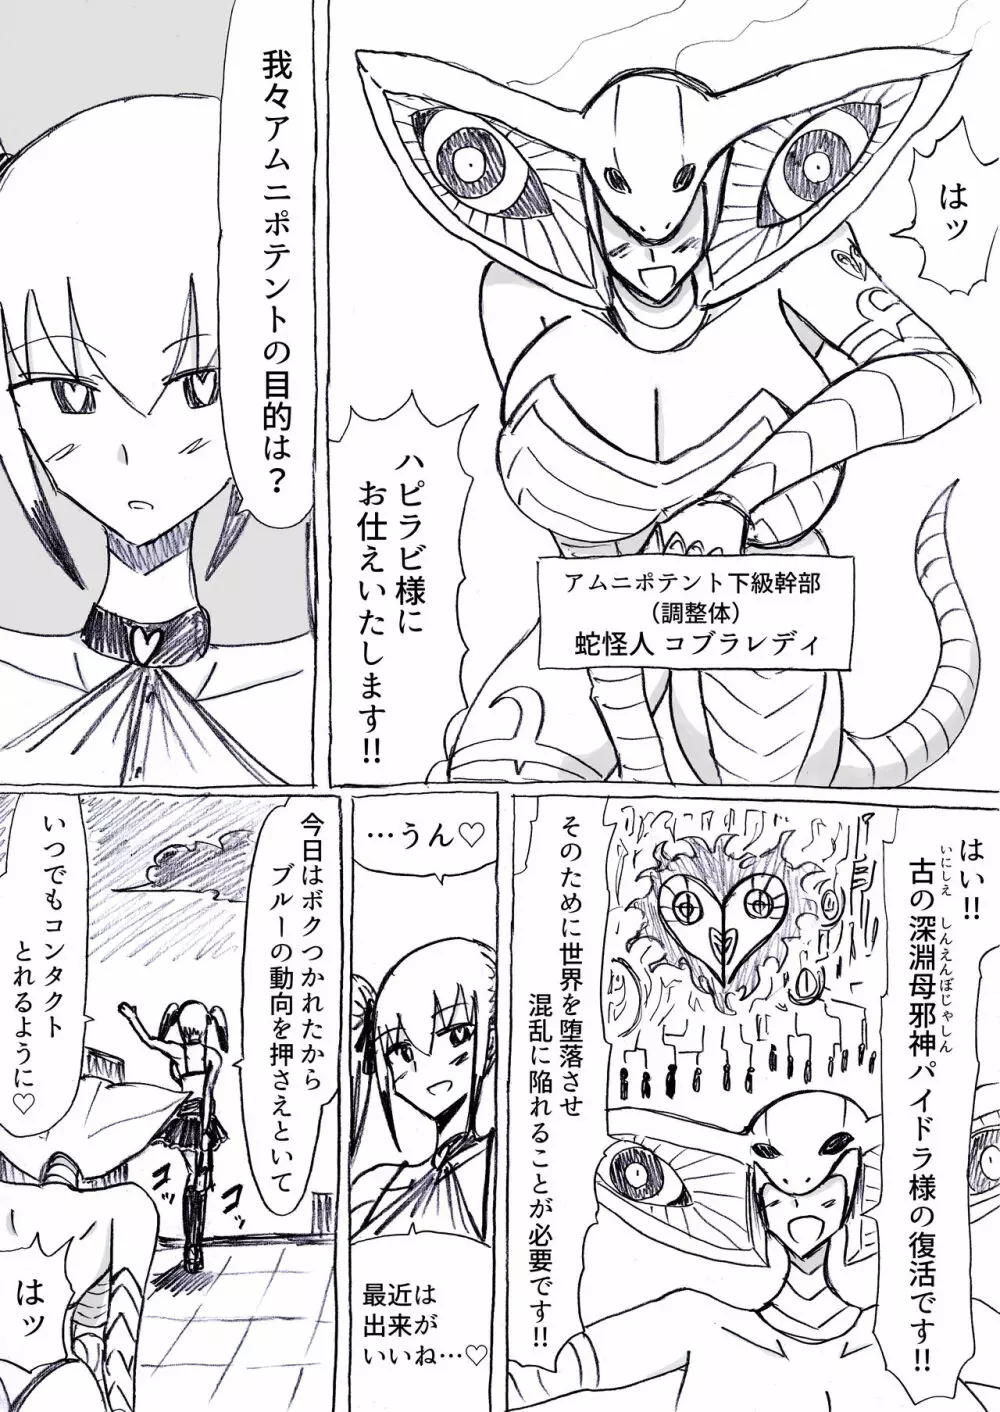 はッ
ハピラビ様に
お仕えいたします!!
アムニポテント下級幹部
(調整体)
蛇怪人 コブラレディ
我々アムニポテントの目的は？
はい!!
古の深淵母邪神パイドラ様の復活です!!
いにしえ しんえんぼじゃしん
そのために世界を堕落させ
混乱に陥れることが必要です!!
…うん♡
最近は
出来が
いいね…♡
今日はボクつかれたから
ブルーの動向を押さえといて
いつでもコンタクト
とれるように♡
はッ